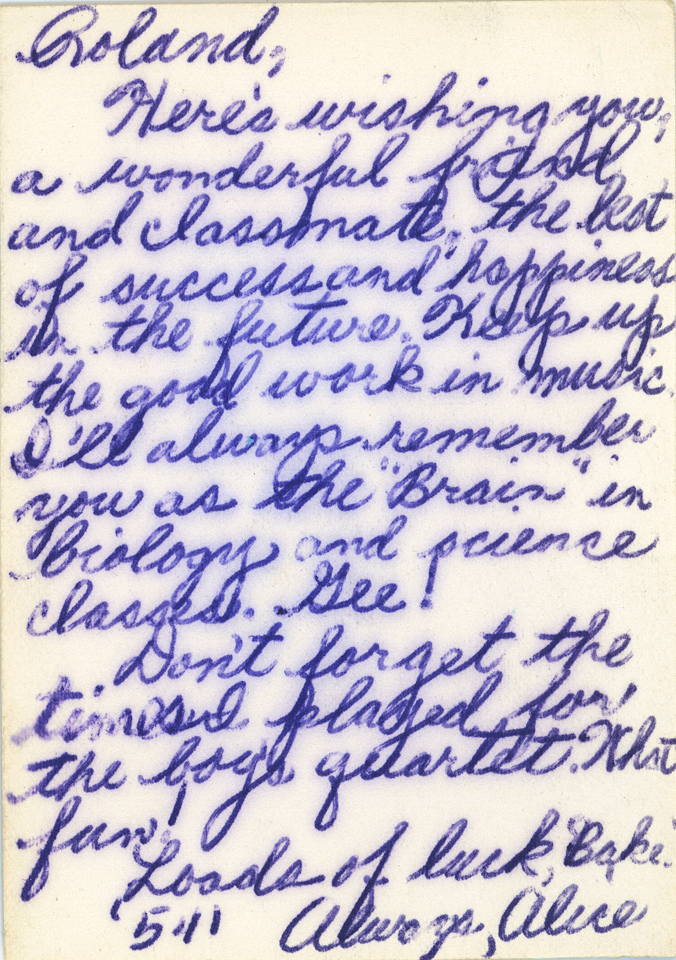 Roland,
Here's wishing you,
a wonderful friend
and classmate, the best
of success and happiness
in the future. Keep up
the good work in music.
I'll always remember
you as the "Brain" in
biology and science
classes. Gee!
Don't forget the
times I played for
the boy's quartet. What
fun!
Loads of luck, "Bake"
'51! Always, Alice